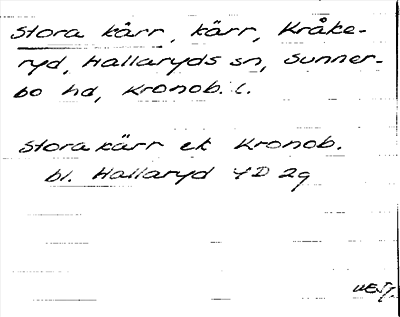 Stora kärr, kärr, Kråke-
ryd, Hallaryds sn, Sunner-
bo hd, Kronob. l.
Stora kärr ek Kronob.
bl. Hallaryd 4D 2g